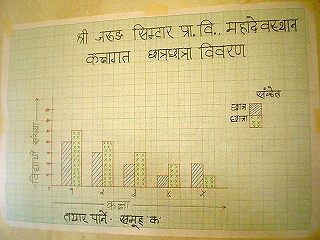 श्री जरूङ सिम्टार प्रा. वि., महादेवस्थान
कक्षागत छात्रछात्रा विवरण
संकेत
छात्र
छात्रा
विद्यार्थी संख्या
१ २ ३ ४ ५
कक्षा
तयार पार्ने: समूह 'क'